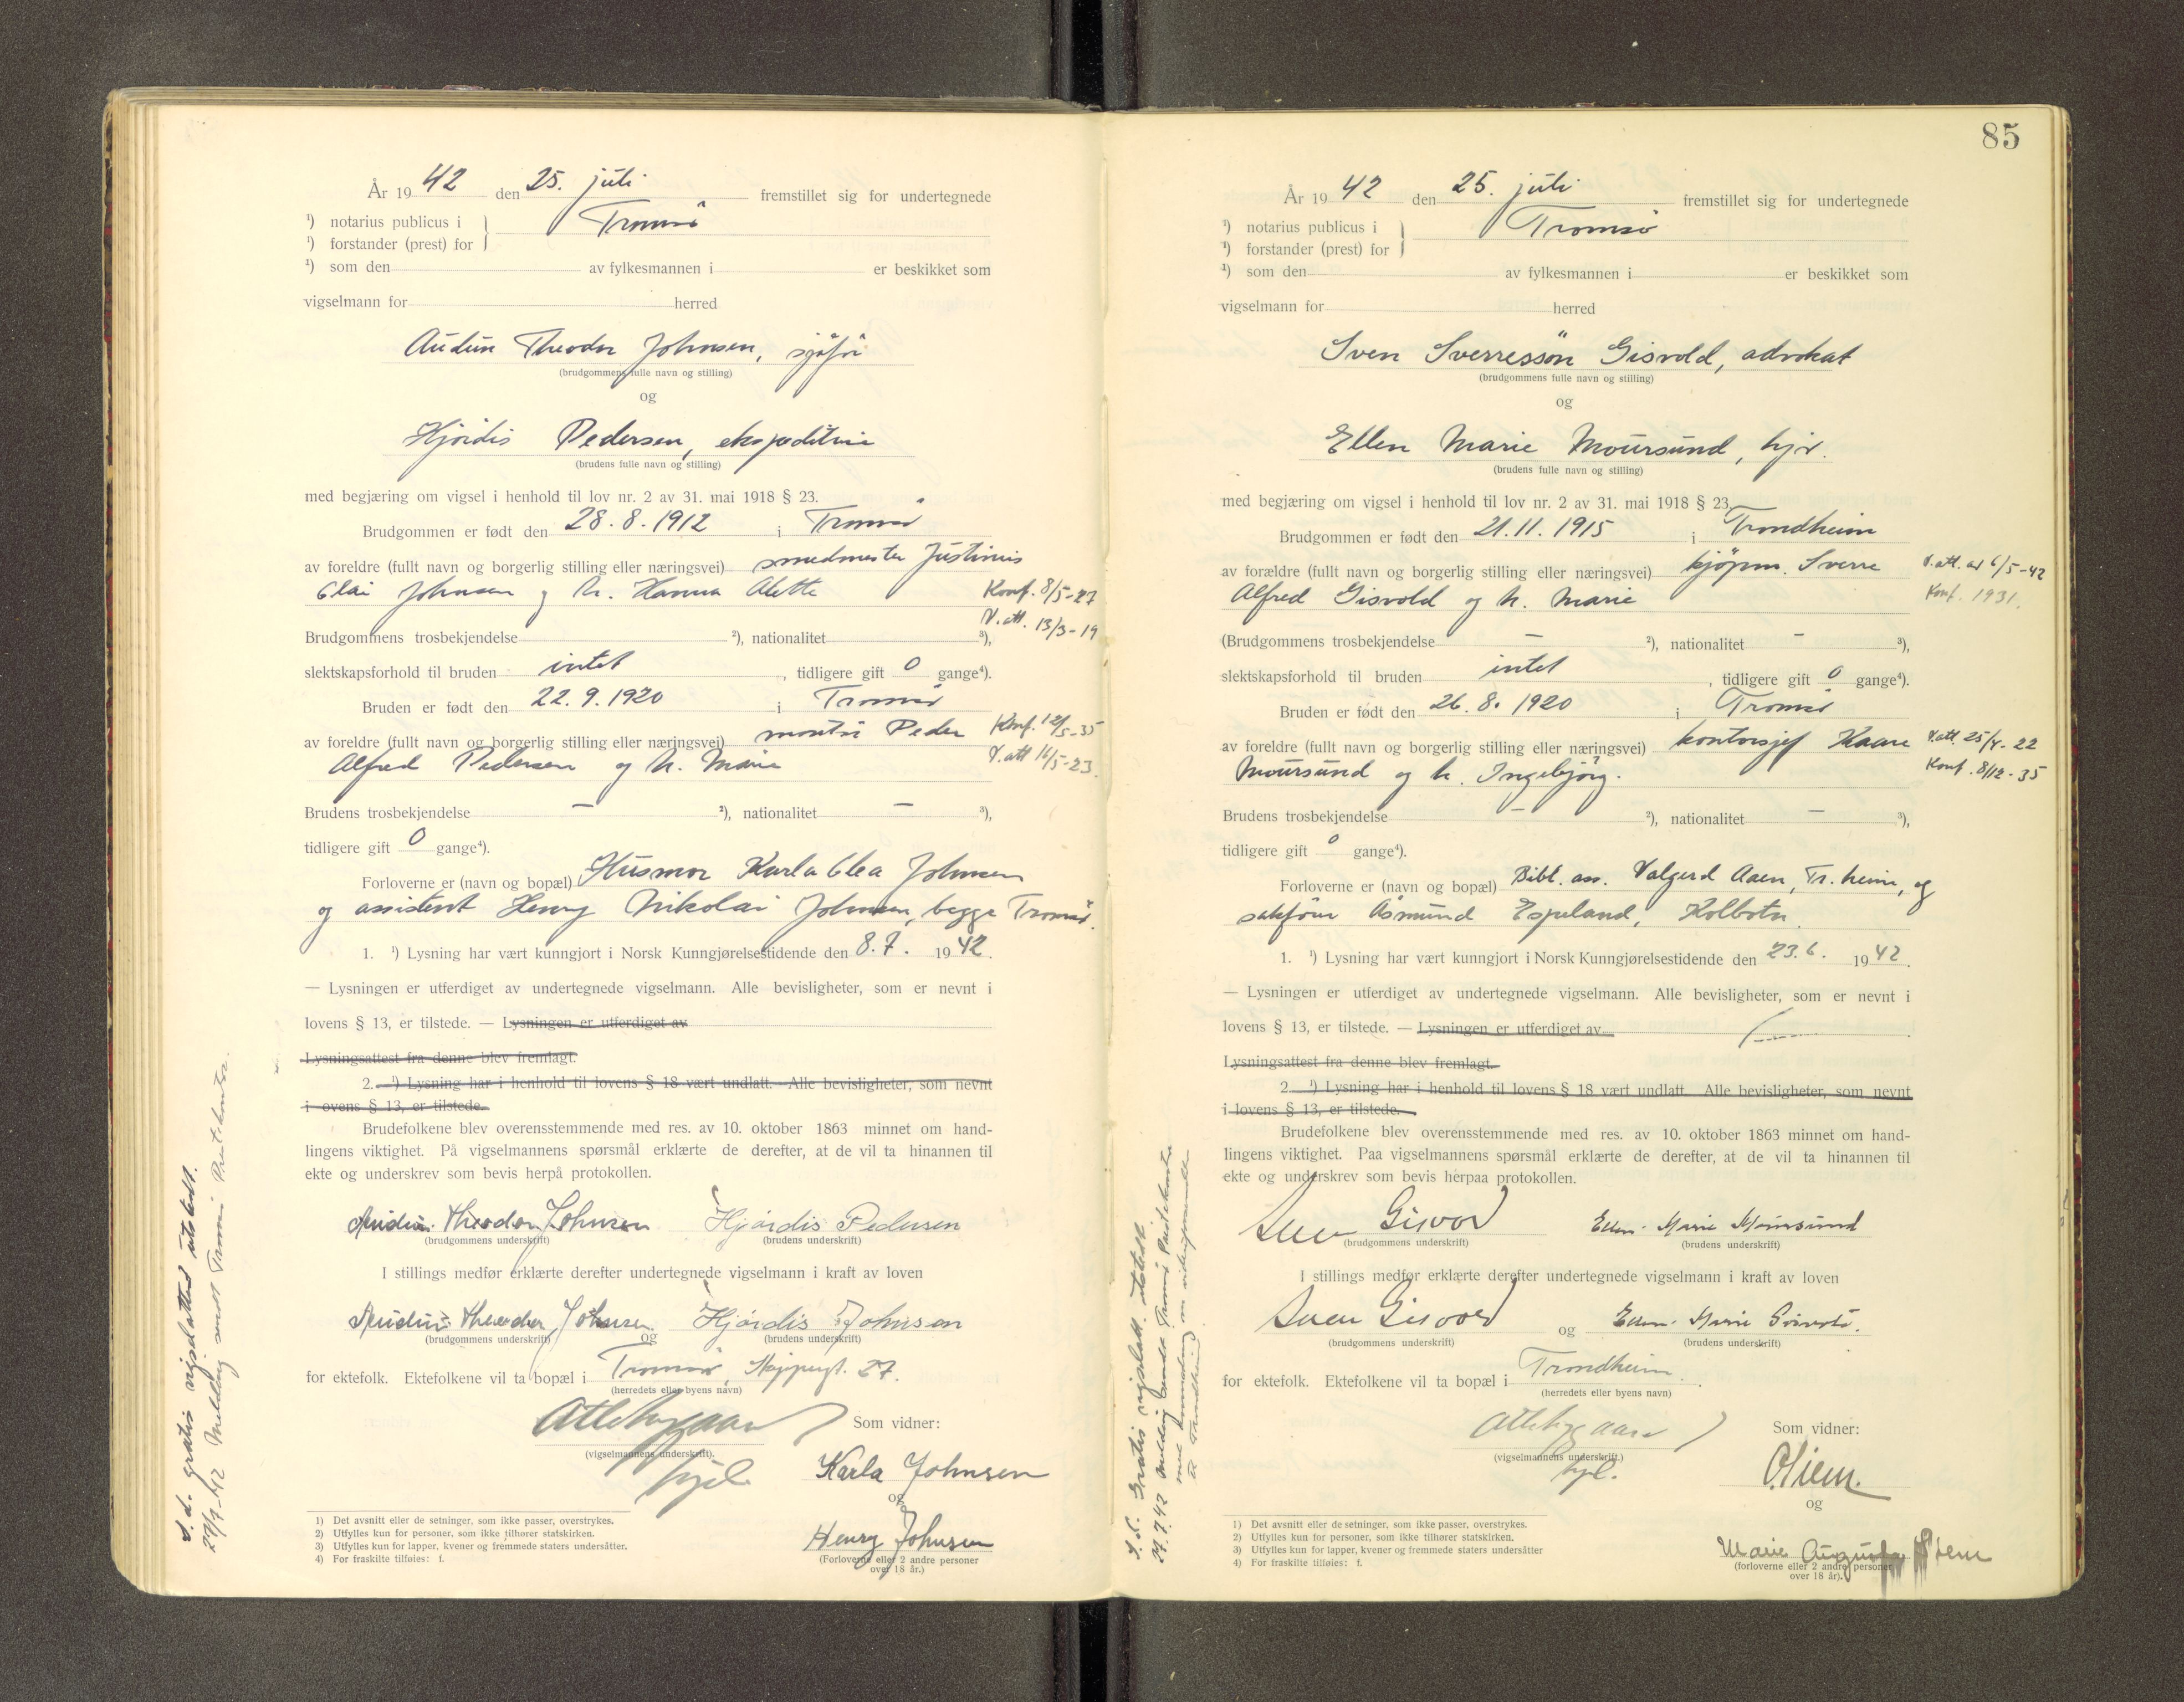 År 19 42 den 25. juli fremstillet sig for undertegnede
¹) notarius publicus i
¹) forstander (prest) for } Tromsö
¹) som den av fylkesmannen i er beskikket som
vigselmann for herred
Audun Theodor Johnsen, sjåför
(brudgommens fulle navn og stilling)
og
Hjördis Pedersen, ekspeditrise
(brudens fulle navn og stilling)
med begjæring om vigsel i henhold til lov nr. 2 av 31. mai 1918 § 23.
Brudgommen er født den 28. 8. 1912 i Tromsö
av foreldre (fullt navn og borgerlig stilling eller næringsvei) smedmester Justinus
Olai Johnsen og h. Hanna Alette
Konf. 8/5-27
V. att. 13/3-19
Brudgommens trosbekjendelse ²), nationalitet ³),
slektskapsforhold til bruden intet, tidligere gift 0 gange⁴).
Bruden er født den 22. 9. 1920 i Tromsö
av foreldre (fullt navn og borgerlig stilling eller næringsvei) montör Peder
Alfred Pedersen og h. Marie
Konf. 12/5-35
V. att 16/5-23.
Brudens trosbekjendelse – ²), nationalitet – ³),
tidligere gift 0 gange⁴).
Forloverne er (navn og bopæl) Husmor Karla Olea Johnsen
og assistent Henry Nikolai Johnsen, begge Tromsö.
1. ¹) Lysning har vært kunngjort i Norsk Kunngjørelsestidende den 8. 7. 19 42.
— Lysningen er utferdiget av undertegnede vigselmann. Alle bevisligheter, som er nevnt i
lovens § 13, er tilstede. — Lysningen er utferdiget av
Lysningsattest fra denne blev fremlagt.
2. ¹) Lysning har i henhold til lovens § 18 vært undlatt. Alle bevisligheter, som nevnt
i ovens § 13, er tilstede.
Brudefolkene blev overensstemmende med res. av 10. oktober 1863 minnet om hand-
lingens viktighet. På vigselmannens spørsmål erklærte de derefter, at de vil ta hinannen til
ekte og underskrev som bevis herpå protokollen.
Audun Theodor Johnsen Hjördis Pedersen
(brudgommens underskrift) (brudens underskrift)
I stillings medfør erklærte derefter undertegnede vigselmann i kraft av loven
Audun Theodor Johnsen og Hjördis Johnsen
(brudgommens underskrift) (brudens underskrift)
for ektefolk. Ektefolkene vil ta bopæl i Tromsö, 27.
(herredets eller byens navn)
(vigselmannens underskrift).
Som vidner:
Karla Johnsen
og
Henry Johnsen
(Forloverne eller 2 andre personer
over 18 år.)
1) Det avsnitt eller de setninger, som ikke passer, overstrykes.
2) Utfylles kun for personer, som ikke tilhører statskirken.
3) Utfylles kun for lapper, kvener og fremmede staters undersåtter.
4) For fraskilte tilføies: f.
S. d. gratis vigselattest utstedt.
29/7-42 Melding sendt Tromsö Prestekontor.
85
År 19 42 den 25. juli fremstillet sig for undertegnede
¹) notarius publicus i
¹) forstander (prest) for } Tromsö
¹) som den av fylkesmannen i er beskikket som
vigselmann for herred
Sven Sverressön Gisvold, advokat
(brudgommens fulle navn og stilling)
og
Ellen Marie Moursund, hjv.
(brudens fulle navn og stilling)
med begjæring om vigsel i henhold til lov nr. 2 av 31. mai 1918 § 23.
Brudgommen er født den 21. 11. 1915 i Trondheim
av forældre (fullt navn og borgerlig stilling eller næringsvei) kjöpm. Sverre
Alfred Gisvold og h. Marie
V. att. av 6/5-42
Konf. 1931.
(Brudgommens trosbekjendelse – ²), nationalitet – ³),
slektskapsforhold til bruden intet, tidligere gift 0 gange⁴).
Bruden er født den 26. 8. 1920 i Tromsö
av foreldre (fullt navn og borgerlig stilling eller næringsvei) kontorsjef Kaare
Moursund og h. Ingebjörg.
V. att. 25/4-22
Konf. 8/12-35
Brudens trosbekjendelse – ²), nationalitet – ³),
tidligere gift 0 gange⁴).
Forloverne er (navn og bopæl) Bibl. ass. Valgerd Aaen, Tr. heim, og
sakförer Åsmund Espeland, Kolbotn.
1. ¹) Lysning har vært kunngjort i Norsk Kunngjørelsestidende den 23. 6. 19 42.
— Lysningen er utferdiget av undertegnede vigselmann. Alle bevisligheter, som er nevnt i
lovens § 13, er tilstede. — Lysningen er utferdiget av
Lysningsattest fra denne blev fremlagt.
2. ¹) Lysning har i henhold til lovens § 18 vært undlatt. Alle bevisligheter, som nevnt
i lovens § 13, er tilstede.
Brudefolkene blev overensstemmende med res. av 10. oktober 1863 minnet om hand-
lingens viktighet. Paa vigselmannens spørsmål erklærte de derefter, at de vil ta hinannen til
ekte og underskrev som bevis herpaa protokollen.
Sven Gisvold Ellen Marie Moursund
(brudgommens underskrift) (brudens underskrift)
I stillings medfør erklærte derefter undertegnede vigselmann i kraft av loven
Sven Gisvold og Ellen Marie Gisvold.
(brudgommens underskrift) (brudens underskrift)
for ektefolk. Ektefolkene vil ta bopæl i Trondheim.
(herredets eller byens navn)
(vigselmannens underskrift.)
Som vidner:
og
Marie Augusta
(forloverne eller 2 andre personer
over 18 år).
1) Det avsnitt eller de setninger, som ikke passer, overstrykes.
2) Utfylles kun for personer, som ikke tilhører statskirken.
3) Utfylles kun for lapper, kvener og fremmede staters undersåtter
4) For fraskilte tilføies: f.
S. d. Gratis vigselatt. utstedt.
29.7.42 Melding sendt Tromsö Prestekontor
med anmodning om
til Trondheim